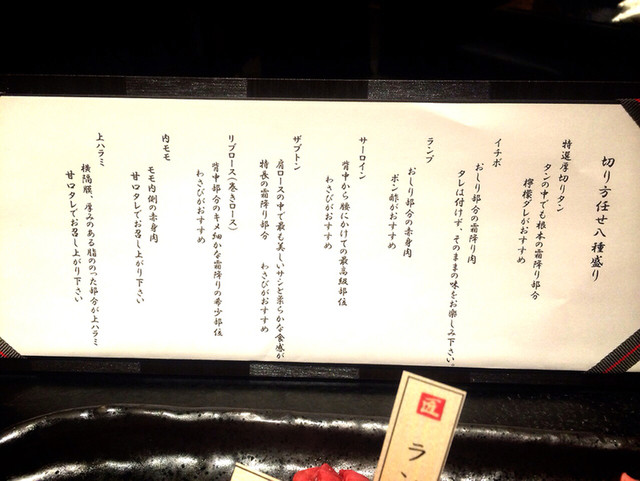 切り方任せ八種盛り
特選厚切りタン
タンの中でも根本の霜降り部分
檸檬ダレがおすすめ
イチボ
おしり部分の霜降り肉
タレは付けず、そのままの味をお楽しみ下さい。
ランプ
おしり部分の赤身肉
ポン酢がおすすめ
サーロイン
背中から腰にかけての最高級部位
わさびがおすすめ
ザブトン
肩ロースの中で最も美しいサシと柔らかな食感が
特長の霜降り部分 わさびがおすすめ
リブロース(巻きロース)
背中部分のキメ細かな霜降りの希少部位
わさびがおすすめ
内モモ
モモ内側の赤身肉
甘口タレでお召し上がり下さい
上ハラミ
横隔膜、厚みのある脂ののった部分が上ハラミ
甘口タレでお召し上がり下さい
匠
ラン